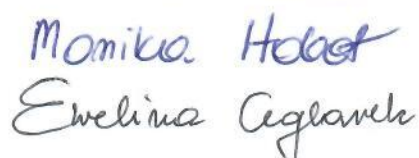 Monika Hobot
Ewelina Ceglarek